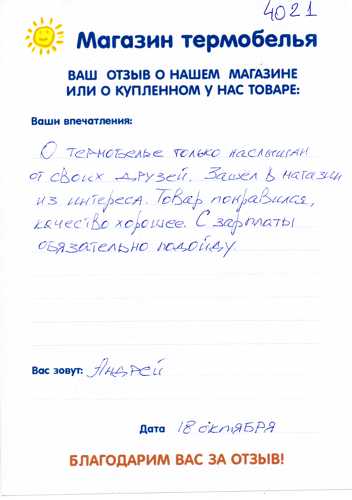 4021
Магазин термобелья
ВАШ ОТЗЫВ О НАШЕМ МАГАЗИНЕ
ИЛИ О КУПЛЕННОМ У НАС ТОВАРЕ:
Ваши впечатления:
О термобелье только наслышан
от своих друзей. Зашел в магазин
из интереса. Товар понравился,
качество хорошее. С зарплаты
обязательно подойду
Вас зовут: Андрей
Дата 18 октября
БЛАГОДАРИМ ВАС ЗА ОТЗЫВ!